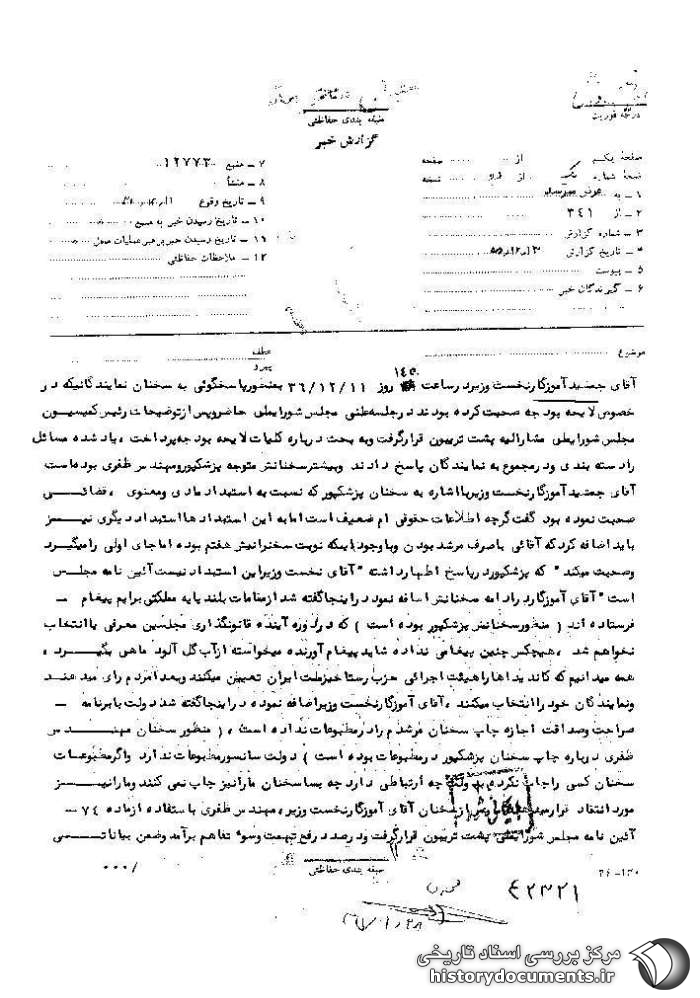 درجه فوریت
طبقه بندی حفاظتی
گزارش خبر
صفحه یکم از صفحه
نسخه شماره یک از نسخه
۱ ـ به
۲ ـ از ۳۴۱
۳ ـ شماره گزارش
۴ ـ تاریخ گزارش
۵ ـ پیوست
۶ ـ گیرندگان خبر
۷ ـ منبع ۱۲۷۷۳
۸ ـ منشأ
۹ ـ تاریخ وقوع
۱۰ ـ تاریخ رسیدن خبر به منبع
۱۱ ـ تاریخ رسیدن خبر به رهبر عملیات محل
۱۲ ـ ملاحظات حفاظتی
موضوع
عطف
پیرو
آقای جمشید آموزگار نخست وزیر در ساعت ۱۴۵۰ روز ۳۶/۱۲/۱۱ بمنظور پاسخگوئی به سخنان نمایندگانیکه در
خصوص لایحه بودجه صحبت کرده بودند در جلسه علنی مجلس شورایملی حاضر و پس از توضیحات رئیس کمیسیون
مجلس شورایملی مشارالیه پشت تریبون قرار گرفت و به بحث درباره کلیات لایحه بودجه پرداخت ، یاد شده مسائل
را دسته بندی و در مجموع به نمایندگان پاسخ دادند و بیشتر سخنانش متوجه پزشکپور و مهندس ظفری بوده است
آقای جمشید آموزگار نخست وزیر با اشاره به سخنان پزشکپور که نسبت به استبداد مادی و معنوی ، قضائی
صحبت نموده بود گفت گرچه اطلاعات حقوقی ام ضعیف است اما به این استبدادها استبداد دیگری نیز
باید اضافه کرد که آقائی با صرف مرشد بودن و با وجود اینکه نوبت سخنرانیش هفتم بوده اما جای اولی را میگیرد
و صحبت میکند " که پزشکپور در پاسخ اظهار داشته " آقای نخست وزیر این استبداد نیست آئین نامه مجلس
است " آقای آموزگار در ادامه سخنانش اضافه نمود در اینجا گفته شد از مقامات بلند پایه مملکتی برایم پیغام ـ
فرستاده اند ( منظور سخنانش پزشکپور بوده است ) که در دوره آینده قانونگذاری مجلسین معرفی یا انتخاب
نخواهم شد ، هیچکس چنین پیغامی نداده شاید پیغام آورنده میخواسته از آب گل آلود ماهی بگیرد ،
همه میدانیم که کاندیداها را هیئت اجرائی حزب رستاخیز ملت ایران تعیین میکنند و بعد از مردم رای میدهند
و نمایندگان خود را انتخاب میکنند ، آقای آموزگار نخست وزیر اضافه نمود در اینجا گفته شد دولت با برنامه ـ
صراحت و صداقت اجازه چاپ سخنان مرشدم را در مطبوعات نداده است ، ( منظور سخنان مهندس
ظفری درباره چاپ سخنان پزشکپور در مطبوعات بوده است ) دولت سانسور مطبوعات ندارد و اگر مطبوعات
سخنان کسی را چاپ نکرده به دولت چه ارتباطی دارد چه بسا سخنان ما را نیز چاپ نمی کنند و ما را نیز
مورد انتقاد قرار میدهند پس از سخنان آقای آموزگار نخست وزیر ، مهندس ظفری با استفاده از ماده ۷۴ ـ
آئین نامه مجلس شورایملی پشت تریبون قرار گرفت و در صدد رفع تهمت و سوء تفاهم برآمد و ضمن بیاناتی
طبقه بندی حفاظتی
۲۴-۱۳۰
۰۰۰/
۴۲۳۲۱
مرکز بررسی اسناد تاریخی
historydocuments.ir